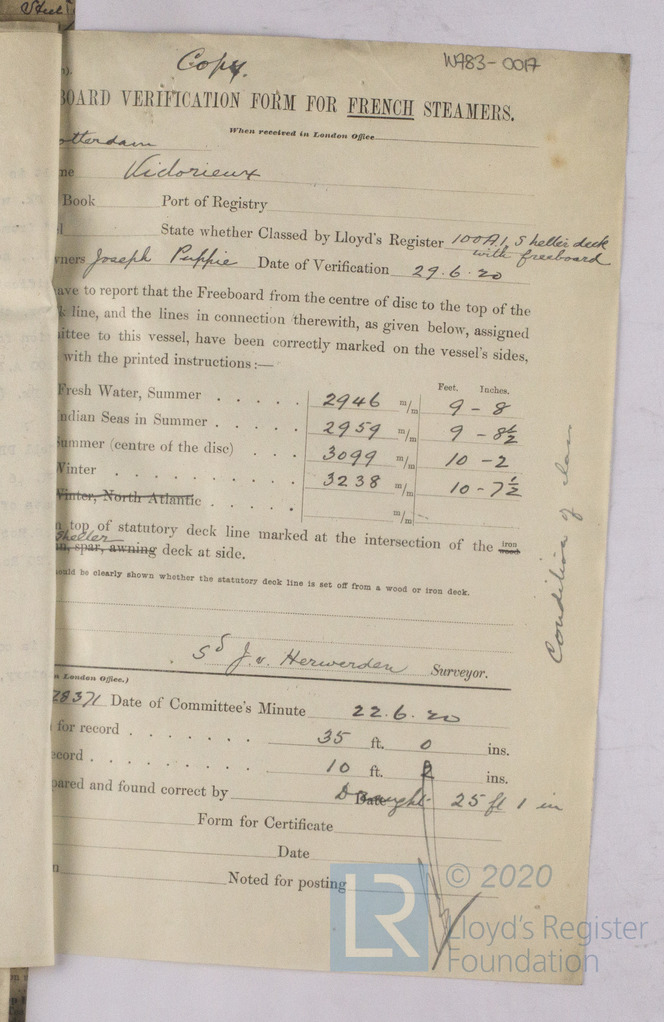 Steel
Copy.
W783-0017
BOARD VERIFICATION FORM FOR FRENCH STEAMERS.
When received in London Office
otterdam
me Vidorieux
Book Port of Registry
State whether Classed by Lloyd's Register 100A1, Shelter deck
with freeboard
wners Joseph Puppie Date of Verification 29.6.20
ave to report that the Freeboard from the centre of disc to the top of the
k line, and the lines in connection therewith, as given below, assigned
mittee to this vessel, have been correctly marked on the vessel's sides,
with the printed instructions:—
Feet. Inches.
Fresh Water, Summer 2946 m/m 9 - 8
Indian Seas in Summer 2959 m/m 9 - 8½
Summer (centre of the disc) 3099 m/m 10 - 2
Winter 3238 m/m 10 - 7½
Winter, North Atlantic m/m
n top of statutory deck line marked at the intersection of the iron wood
Shelter
n, spar, awning deck at side.
ould be clearly shown whether the statutory deck line is set off from a wood or iron deck.
Condition of class
Sd J. v. Herwerden Surveyor.
n London Office.)
28371 Date of Committee's Minute 22.6.20
for record 35 ft. 0 ins.
ecord 10 ft. 2 ins.
pared and found correct by Date Draught 25 ft 1 in
Form for Certificate
Date
n Noted for posting
LR © 2020
Lloyd's Register
Foundation